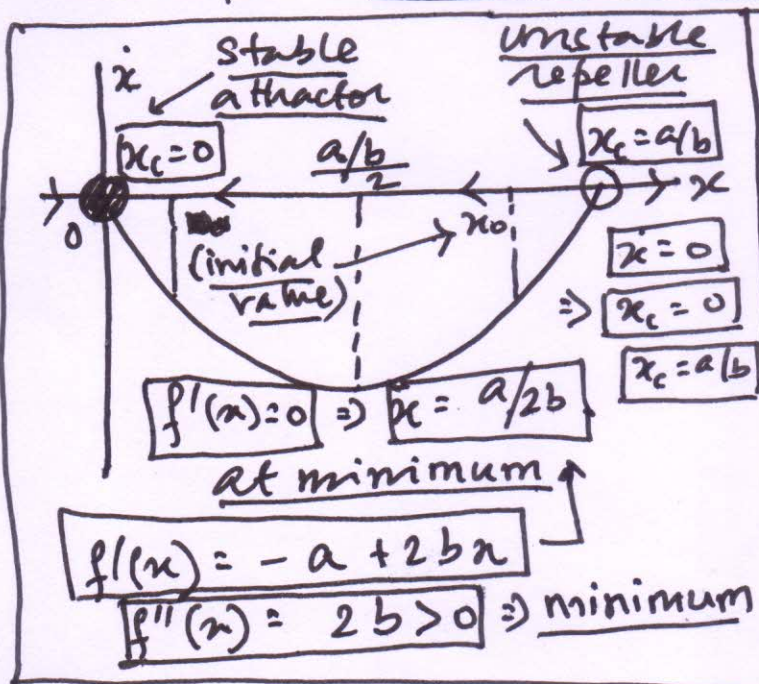 ẋ
stable
attractor
unstable
repeller
x_c = 0
a/b
2
x_c = a/b
x
0
(initial
value)
x_0
ẋ = 0
⇒ x_c = 0
x_c = a/b
f'(x) = 0 ⇒ x = a/2b
at minimum
f'(x) = - a + 2bx
f''(x) = 2b > 0 ⇒ minimum